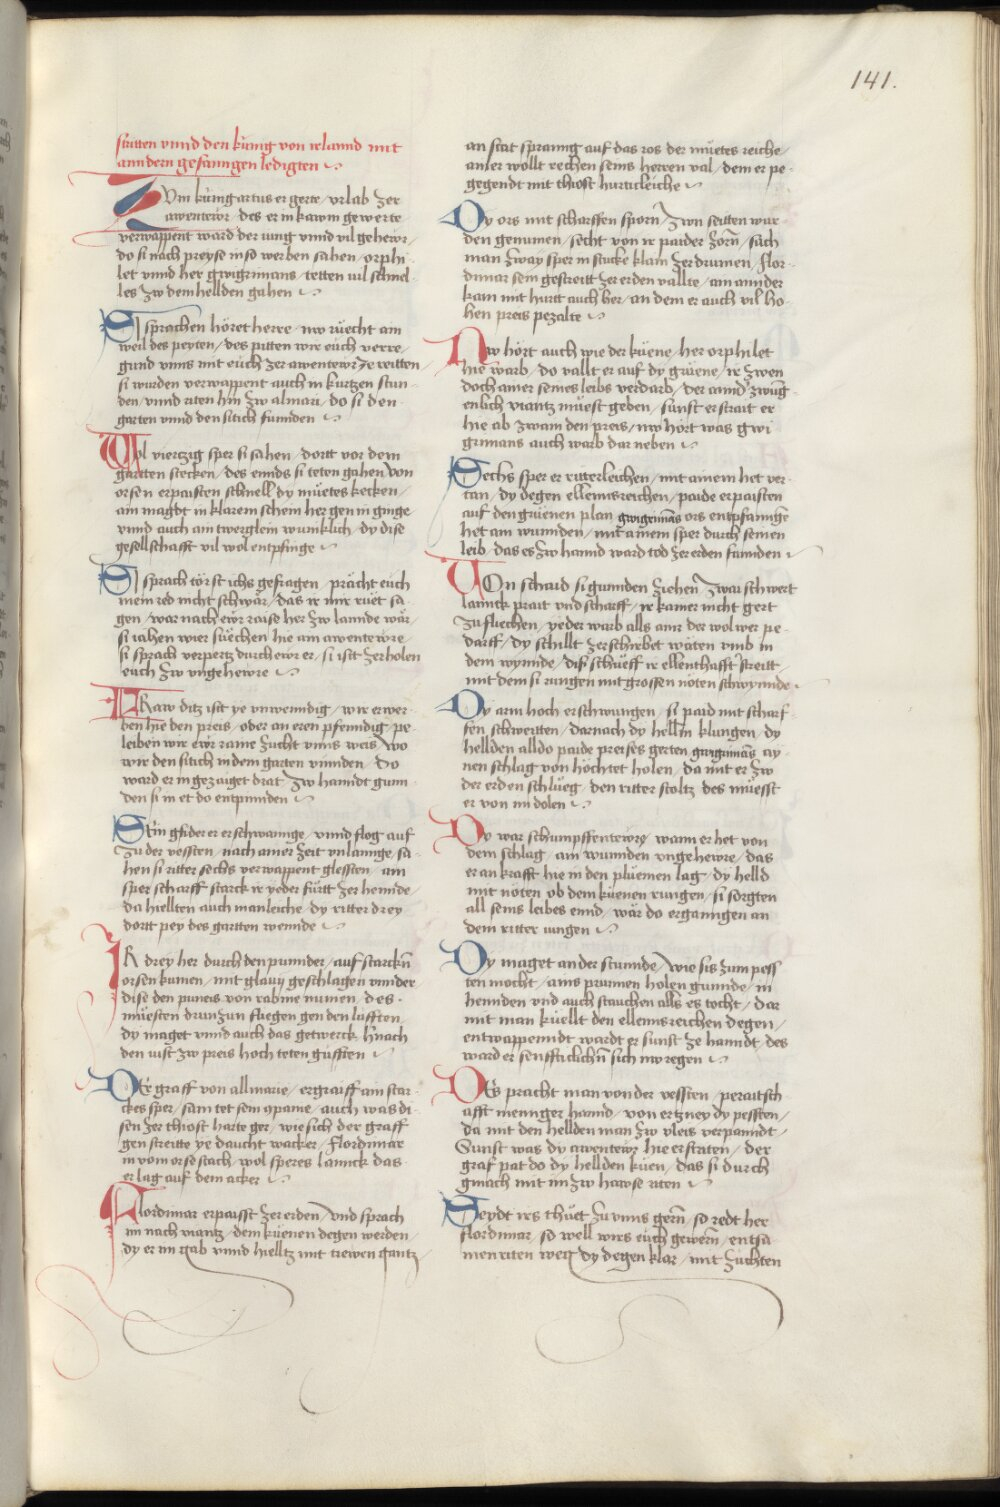 141.
stritten vnnd den kunig von irlannd mit
anndern gefanngen ledigten
Vom kunig artus er gerte / vrlab zer
awentewr / des er in kawm gewerte
verwappent ward der iung vnnd vil gehewr /
do si nach preyse in so werben sahen / orphi-
let vnnd her gwigrimans / tetten vil schnel-
les zw dem hellden gahen
Si sprachen höret herre / nw ruecht ain
weil des peyten / des pitten wir euch verre /
gund vnns mit euch zer awentewr ze reitten /
si wurden verwappent auch in kurtzen stun-
den / vnnd riten hin zw almari / do si den
garten vnnd den sitich funnden
Wol viertzig sper si sahen / dortt vor dem
gartten stecken / des ennds si teten gahen / von
orsen erpaisten schnell dy muetes kecken /
ain magdt in klarem schein her gen in ginge
vnnd auch ain twerglein wunklich / dy dise
gesellschafft vil wol entpfinge
Si sprach törst ichs gefragen / prächt euch
mein red nicht schwär / das ir mir ruet sa-
gen / war nach ewr raise her zw lannde wär
si iahen wier suechen hie am awentewre /
si sprach verpertz durch ewr er / si istt zerholen
euch zw vngehewre
Fraw ditz istt ye vnwenndig / wir erwer-
ben hie den preis / oder an eren pfenndig / pe-
leiben wir ewr raine zucht vnns weis / wo
wir den sitich in dem garten vinnden / do
ward er in gezaiget drat / zw hanndt gunn-
den si in et do entpinnden
Sein gfider er erschwannge / vnnd flog auf
zu der vessten / nach ainer zeit vnlannge / sa-
hen si ritter sechs verwappent glessten / ain
sper scharff starck ir yeder fürtt zer hennde /
da hiellten auch manleiche / dy ritter drey
dortt pey des gartten wennde
Ir drey her durch den punnder / auf starckn
orsen kumen / mit glauy geschlagen vnnder /
dise den puneis von rabine numen / des
muesten drunzun fliegen gen den lufften /
dy maget vnnd auch das getwerck / hnach
den iust zw preis hoch teten güfften
Der graff von allmarie / ergraiff ain star-
ckes sper / sam tet sein cpanie / auch was di-
sen zer thiost harte ger / wie sich der graff
gen streitte ye daucht wacker / flordimar
in vom orse stach / wol speres lannck das
er lag auf dem acker
Flordimar erpaisst zer erden / vnd sprach
im nach viantz / dem küenen degen werden /
dy er im gab vnnd hielltz mit trewen gantz /
an stat sprang auf das ros der müetes reiche /
ainer wollt rechen seins herren val / dem er pe-
gegendt mit thiost hurticleiche
Dy ors mit scharffen sporn / zwn seitten wur-
den genumen / secht von ir paider zorn / sach
man zway sper in stucke klain zerdrumen / flor-
dimar sein gestreitt zer erden vallte / ain annder
kam mit hurtt auch her / an dem er auch vil ho-
hen preis pezalte
Nw hört auch wie der küene / her orphilet
hie warb / do vallt er auf dy grüene / ir zwen
doch ainer seines leibs verdarb / der annd' zwüg-
enlich viantz müest geden / sunst erstrait er
hie ab zwain den preis / nw hort was gwi-
grimans auch warb dar neben
Sechs sper er ritterleichen / mit ainem het ver-
tan / dy degen ellennsreichen / paide erpaisten
auf den grüenen plan / gwigrimas ors entpfanngē
het ain wunnden / mit ainem sper durch seinen
leib / das es zw hannd ward tod zer erden funnden
Von schaid si gunnden ziehen / zwai schwert
lannck prait vnd scharff / ir kainer nicht gert
zu fliechen / yeder warb alls ainr der wol wer pe-
darff / dy schillt zerschribet waten vmb in
dem wynnde / diß schueff ir ellenthafft streitt /
mit dem si rungen mit grossen nöten schwynnde
Dy arm hoch erschwungen / si paid mit scharf-
fen schwertten / darnach dy hellm klungen / dy
hellden alldo paide preises gerten / gwigrimās ay-
nen schlag von höchtet holen / da mit er zw
der erden schlueg / den ritter stoltz / des müesst
er von im dolen
Do war schumpffentewre / wann er het von
dem schlag / ain wunnden vngehewre / das
er an krafft hie in den pluemen lag / dy helld
mit nöten ob dem küenen rungen / si sorgten
all seins leibes ennd / wär do erganngen an
dem ritter iungen
Dy maget an der stunnde / wie sis zum pess-
ten mocht / ains prunnen holen gunnde / in
hennden vnd auch stauchen alls es tocht / dar
mit man küellt den ellennsreichen degen /
entwappenndt wardt er sunst ze hanndt / des
ward er senffticlichn sich nw regen
Des pracht man von der vessten / peraitsch-
afft menniger hannd / von ertzney dy pessten /
da mit den hellden man zw vleis verpanndt /
Sunst was dy awentewr hie erstriten / der
graf pat do dy hellden küen / das si durch
gmach mit im zw hawse riten
Seydt irs thüet zu vnns gern / so redt her
flordimar / so well wirs euch gewern / entsa-
men riten weg dy degen klar / mit zuchten